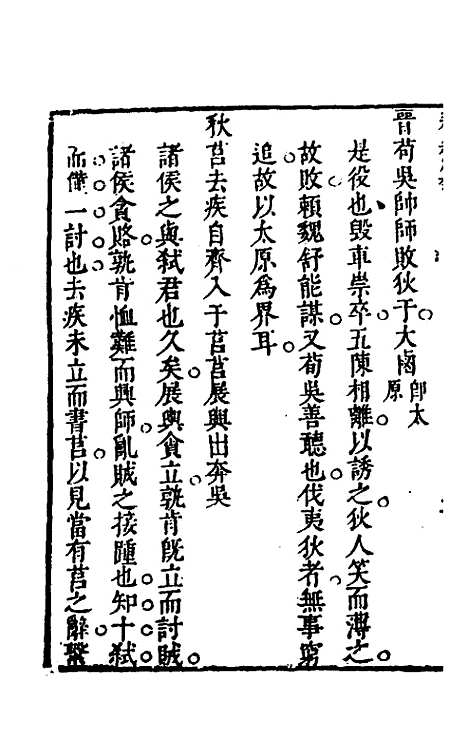 晉荀吳帥師敗狄于大鹵即太原
是役也毀車崇卒五陳相離以誘之狄人笑而薄之
故敗賴魏舒能謀又荀吳善聽也伐夷狄者無事窮
追故以太原爲界耳
秋莒去疾自齊入于莒莒展輿出奔吳
諸侯之與弑君也久矣展輿貪立孰肯旣立而討賊
諸侯貪賂孰肯恤難而興師亂賊之接踵也知十弑
而僅一討也去疾未立而書莒以見當有莒之辭繫